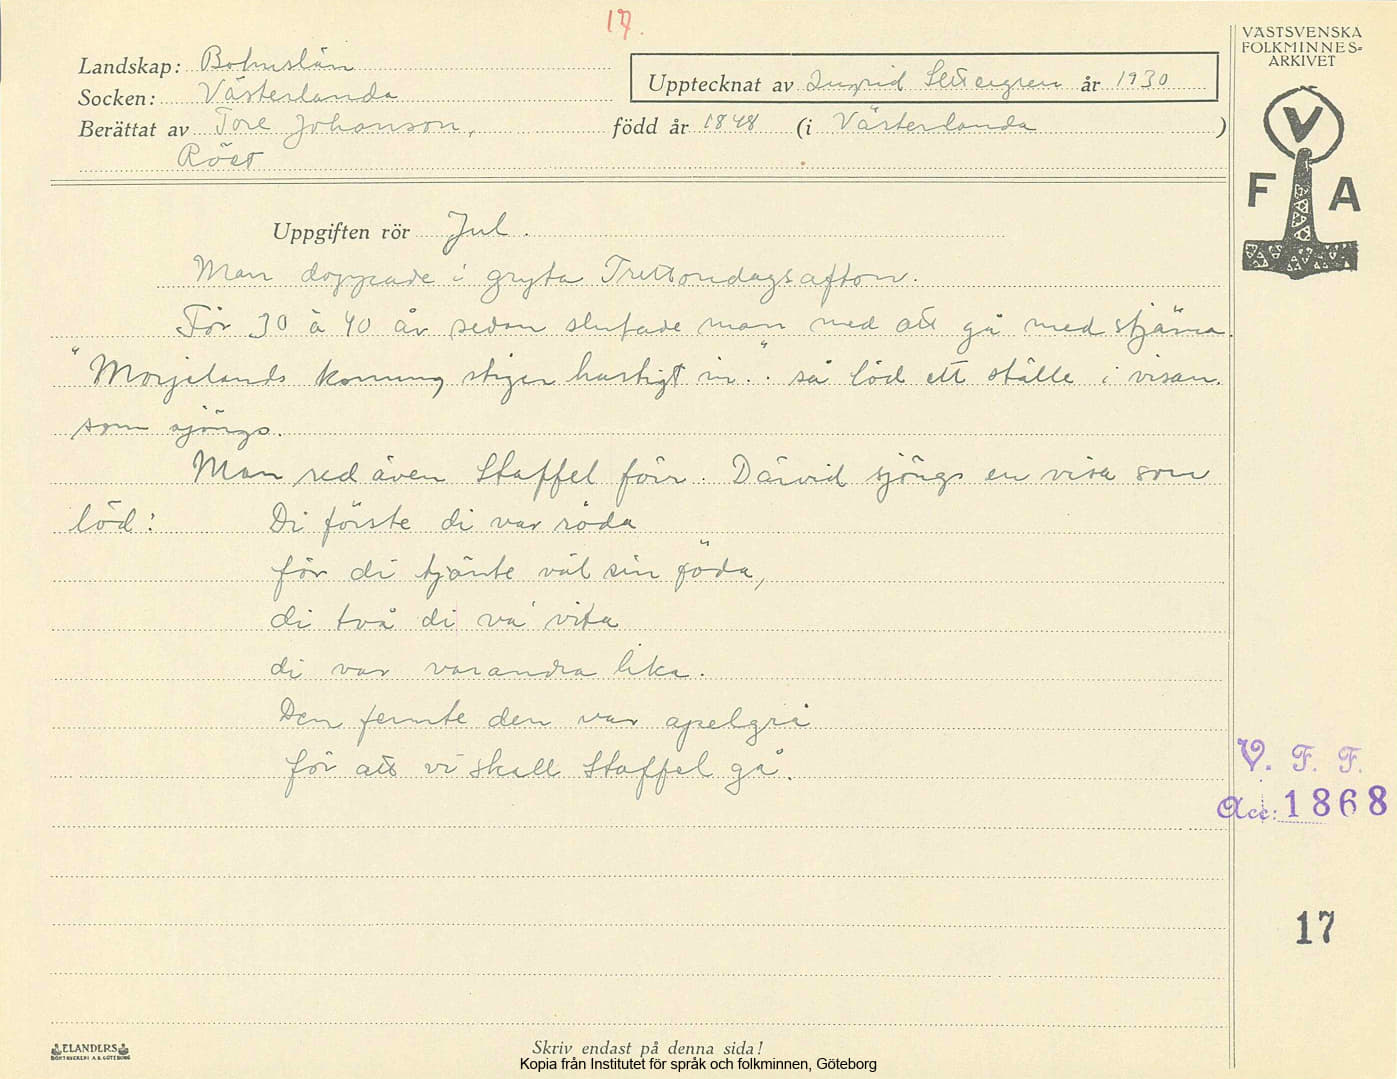 17.
VÄSTSVENSKA
FOLKMINNES=
ARKIVET
Landskap: Bohuslän
Socken: Västerlanda
Upptecknat av Ingrid år 1930
Berättat av Tore Johanson, född år 1848 (i Västerlanda )
Röst
V
F A
Uppgiften rör Jul.
Man doppade i gryta Trettondagsafton.
För 30 à 40 år sedan slutade man med att gå med stjärna.
"Morjelands konung stiger hastigt in.." så löd ett ställe i visan
som sjöngs.
Man red även Staffel förr. Därvid sjöngs en visa som
löd: Di förste di var röda
för di tjänte väl sin föda,
di två di va' vita
di var varandra lika.
Den femte den var apelgrå
för att vi skall Staffel gå.
V. F. F.
Acc: 1868
17
ELANDERS
BOKTRYCKERI A.B. GÖTEBORG
Skriv endast på denna sida!
Kopia från Institutet för språk och folkminnen, Göteborg